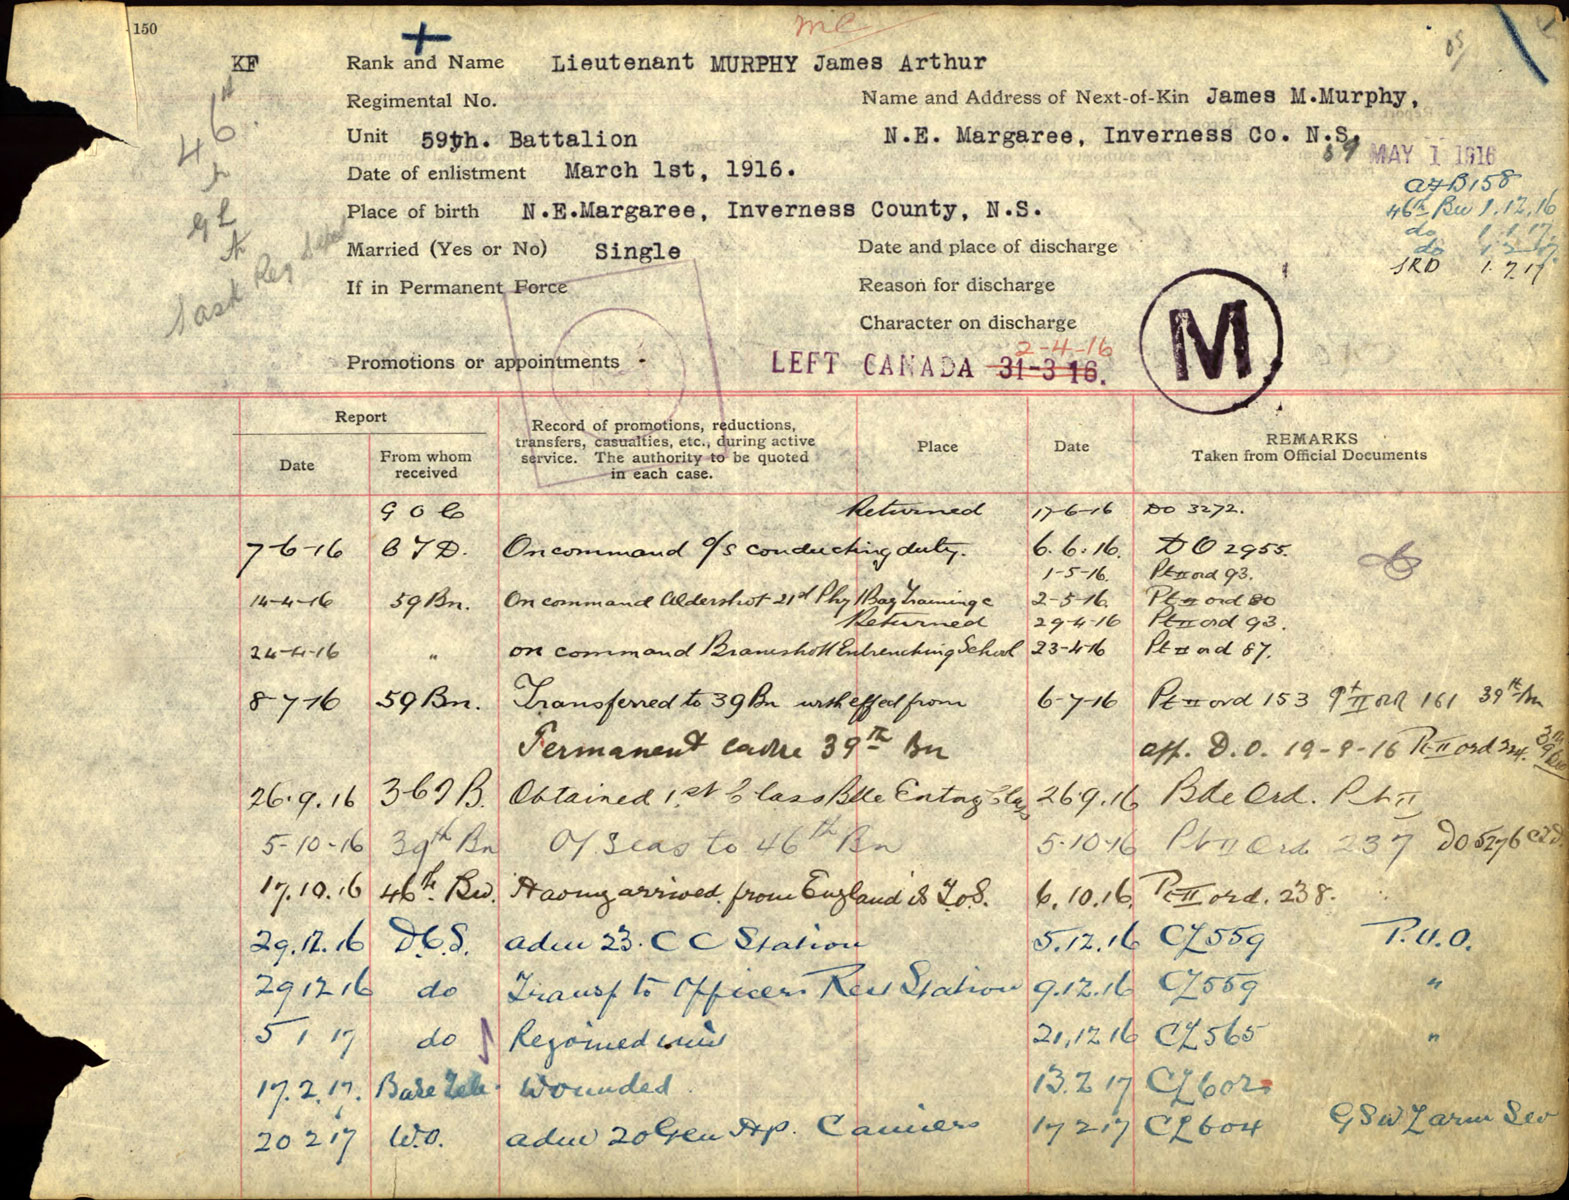 150
MC
KF Rank and Name Lieutenant MURPHY James Arthur
Regimental No.
Name and Address of Next-of-Kin James M.Murphy,
N.E. Margaree, Inverness Co. N.S.
Unit 59th. Battalion
39 MAY 1 1916
Date of enlistment March 1st, 1916.
AFB158
46th Bn 1.12.16
do 1.1.17.
do
SRD 1.7.17
Place of birth N.E.Margaree, Inverness County, N.S.
Married (Yes or No) Single
Date and place of discharge
If in Permanent Force
Reason for discharge
Character on discharge
46th
Sask Reg
Promotions or appointments -
LEFT CANADA 31-3 16. 2-4-16
M
Report
Date
From whom received
Record of promotions, reductions, transfers, casualties, etc., during active service. The authority to be quoted in each case.
Place
Date
REMARKS
Taken from Official Documents
G O C Returned 17-6-16 DO 3272.
7-6-16 C T D. On command o/s conducting duty. 6.6.16. D O 2955.
1-5-16. Pt II ord 93.
14-4-16 59 Bn. On command Aldershot 21st Phy / Bay Training c 2-5-16. Pt II ord 80
Returned 29-4-16 Pt II ord 93.
24-4-16 " on command Bramshott Entrenching School 23-4-16 Pt II ord 87.
8-7-16 59 Bn. Transferred to 39 Bn with effect from 6-7-16 Pt II ord 153 Pt II ord 161 39th Bn
Permanent Cadre 39th Bn app. D.O. 19-9-16 Pt II ord 224. 39th Bn
26.9.16 3 C T B. Obtained 1st Class Bde Entng Class 26.9.16 Bde Ord. Pt II
5-10-16 39th Bn O/Seas to 46th Bn 5-10-16 Pt II Ord 237 DO 5276 CTD
17.10.16 46th Bn. Having arrived from England is T.o.S. 6.10.16. Pt II ord. 238.
29.12.16 D.C.S. adm 23. C C Station 5.12.16 CL 559 P.U.O.
29 12 16 do Transf to Officers Rest Station 9.12.16 CL 559 "
5 1 17 do Rejoined unit 21.12 16 CL 565 "
17.2.17. Base Tele Wounded 13.2 17 CL 602
20 2 17 W.O. adm 20 Gen Hsp. Camiers 17 2 17 CL 604 GSW L arm Sev